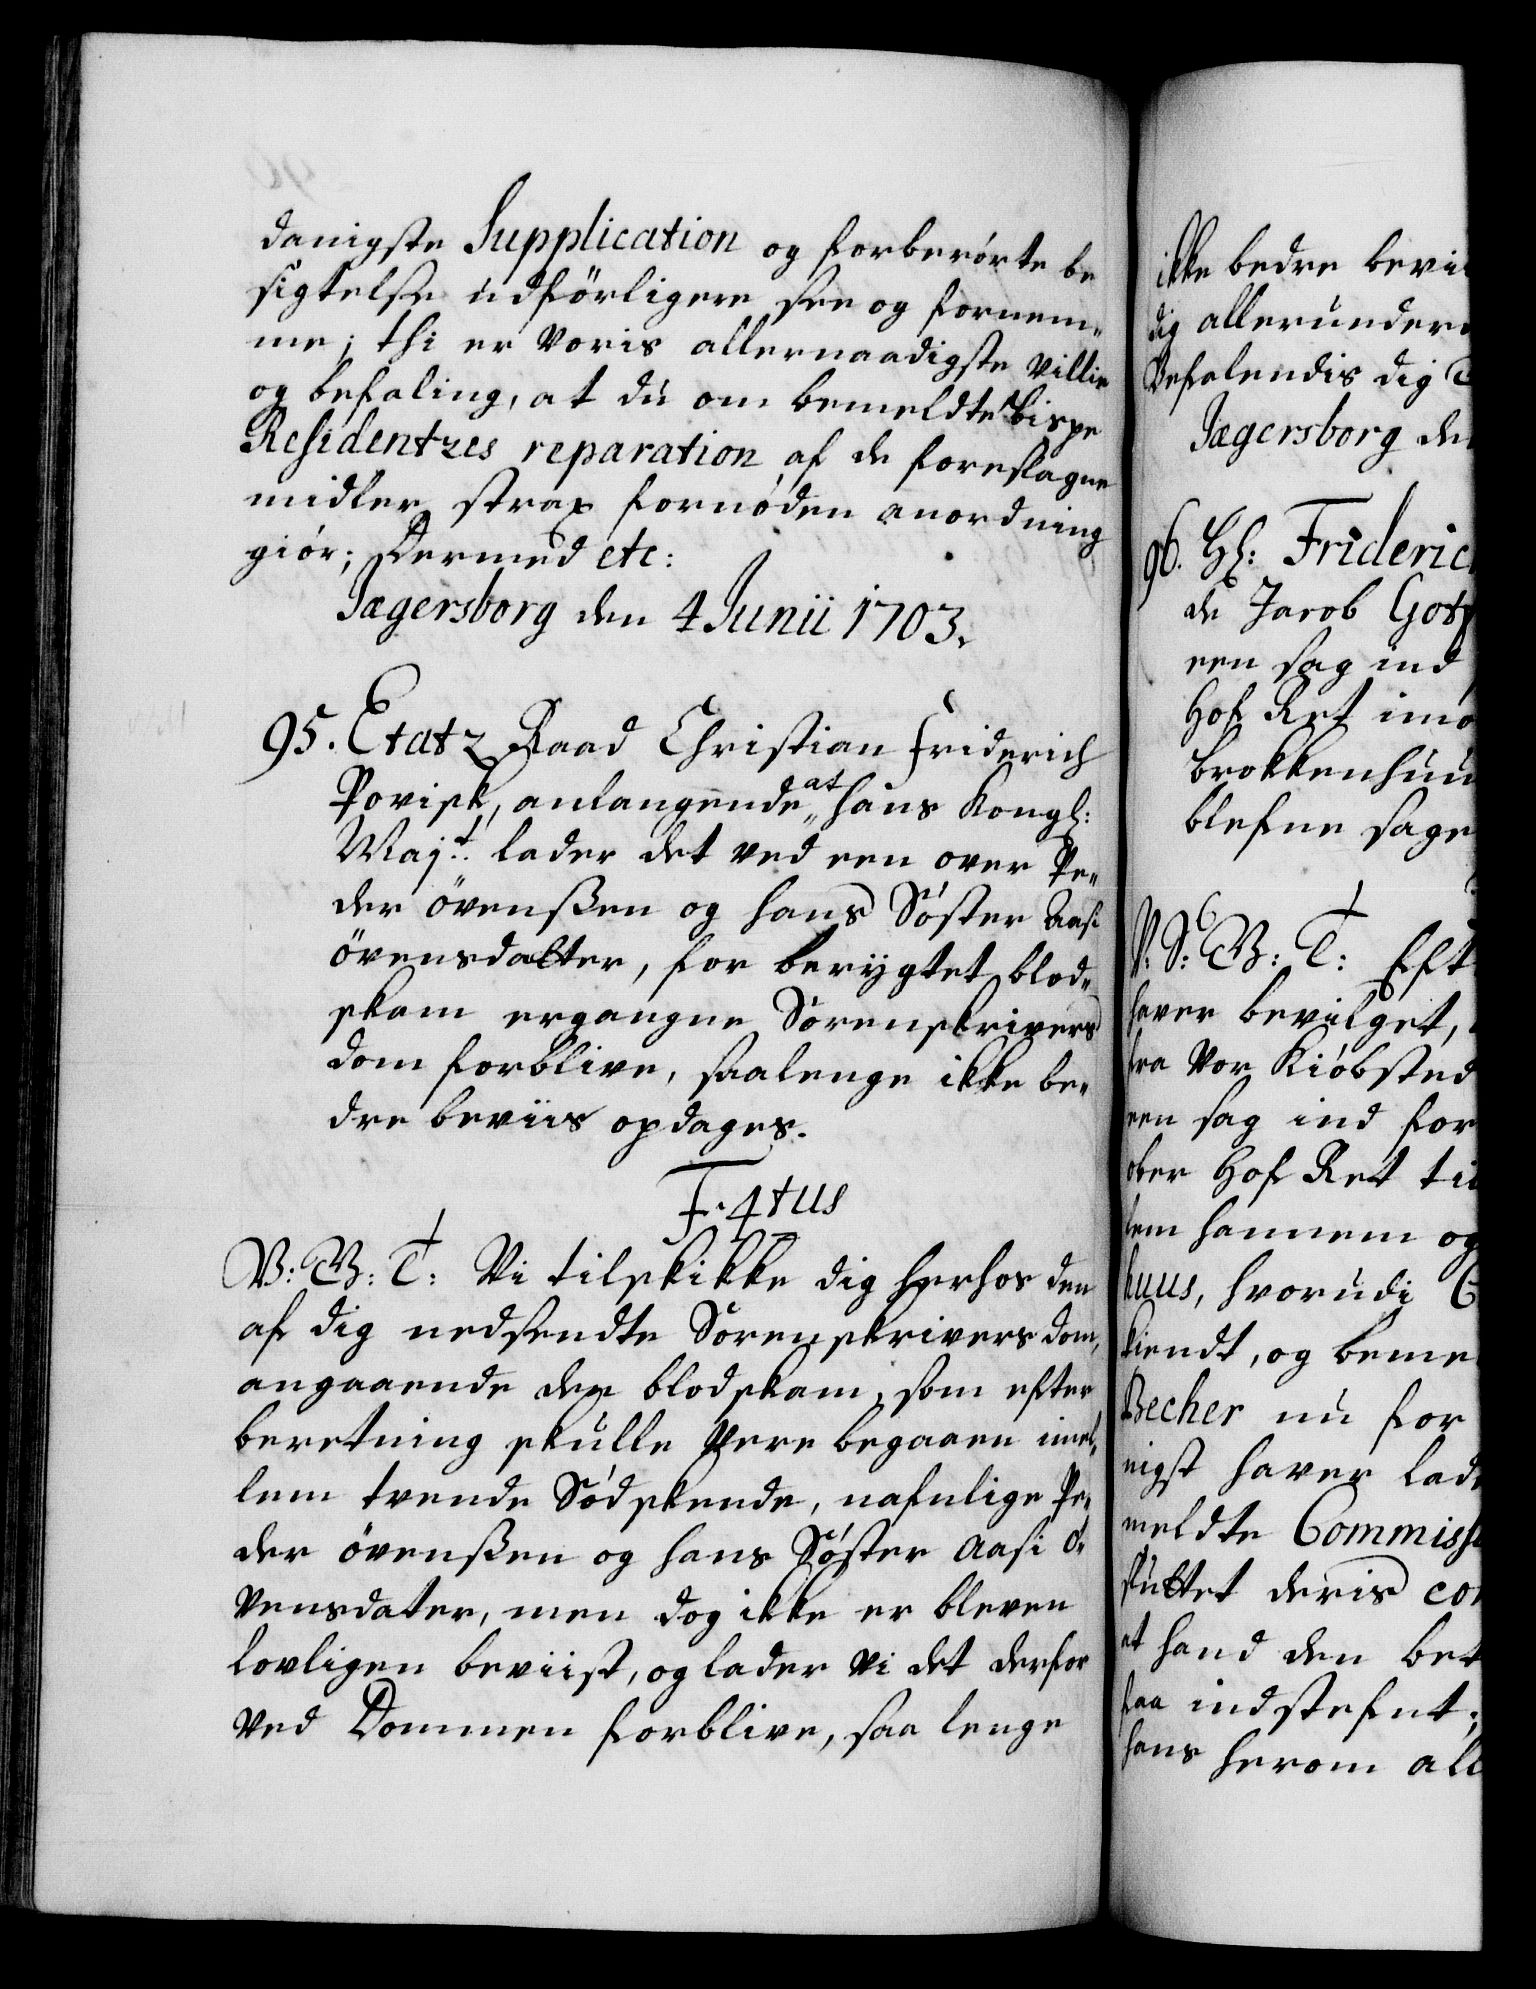 danigste Supplication og forberørte be
sigtelse udförligere see og fornem¬
me; thi er Voris allernaadigste Villie
og befaling, at du om bemeldte Bispe
Residentzes reparation af de foreslagne
midler strax fornøden anordning
giör; Dermed etc:
Jægersborg den 4 Junii 1703.
95. Etatz Raad Christian Friderich
Povisk, anlangende at hans Kongl:
Majt: lader det ved een over Pe¬
der övenßen og hans Söster Aasi
övensdatter, for berygtet blod¬
skam ergangne Sorenskrivers
dom forblive, saalenge ikke be¬
dre beviis opdages.
F. 4tus
V: G: T: Vi tilskikke dig herhos den
af dig nedsendte Sorenskrivers dom,
angaaende den blodskam, som efter
beretning skulle Vere begaaen imel¬
lem tvende Södskende, nafnlige Pe¬
der övenßen og hans Söster Aasi ö¬
vensdater, men dog ikke er bleven
lovligen beviist, og lader Vi det derfor
Ved Dommen forblive, saa lenge
ikke bedre bevi
dig allerunder
Befalendis dig T
Jægersborg den
96. Hl: Frideric
de Jacob Got
een sag ind
Hof Ret imo
Brokkenhuu
blefne sage
V: S: G: T: Eft
haver bevilget,
fra Vor Kiöbsted
een sag ind for
ober Hof Ret ti
lem hannem og
huus, hvorudi
kiendt, og beme
Becher nu for
nigst haver lad
meldte Commiss
sluttet deris co
at hand den bet
faa indstefnt;
hans herom all